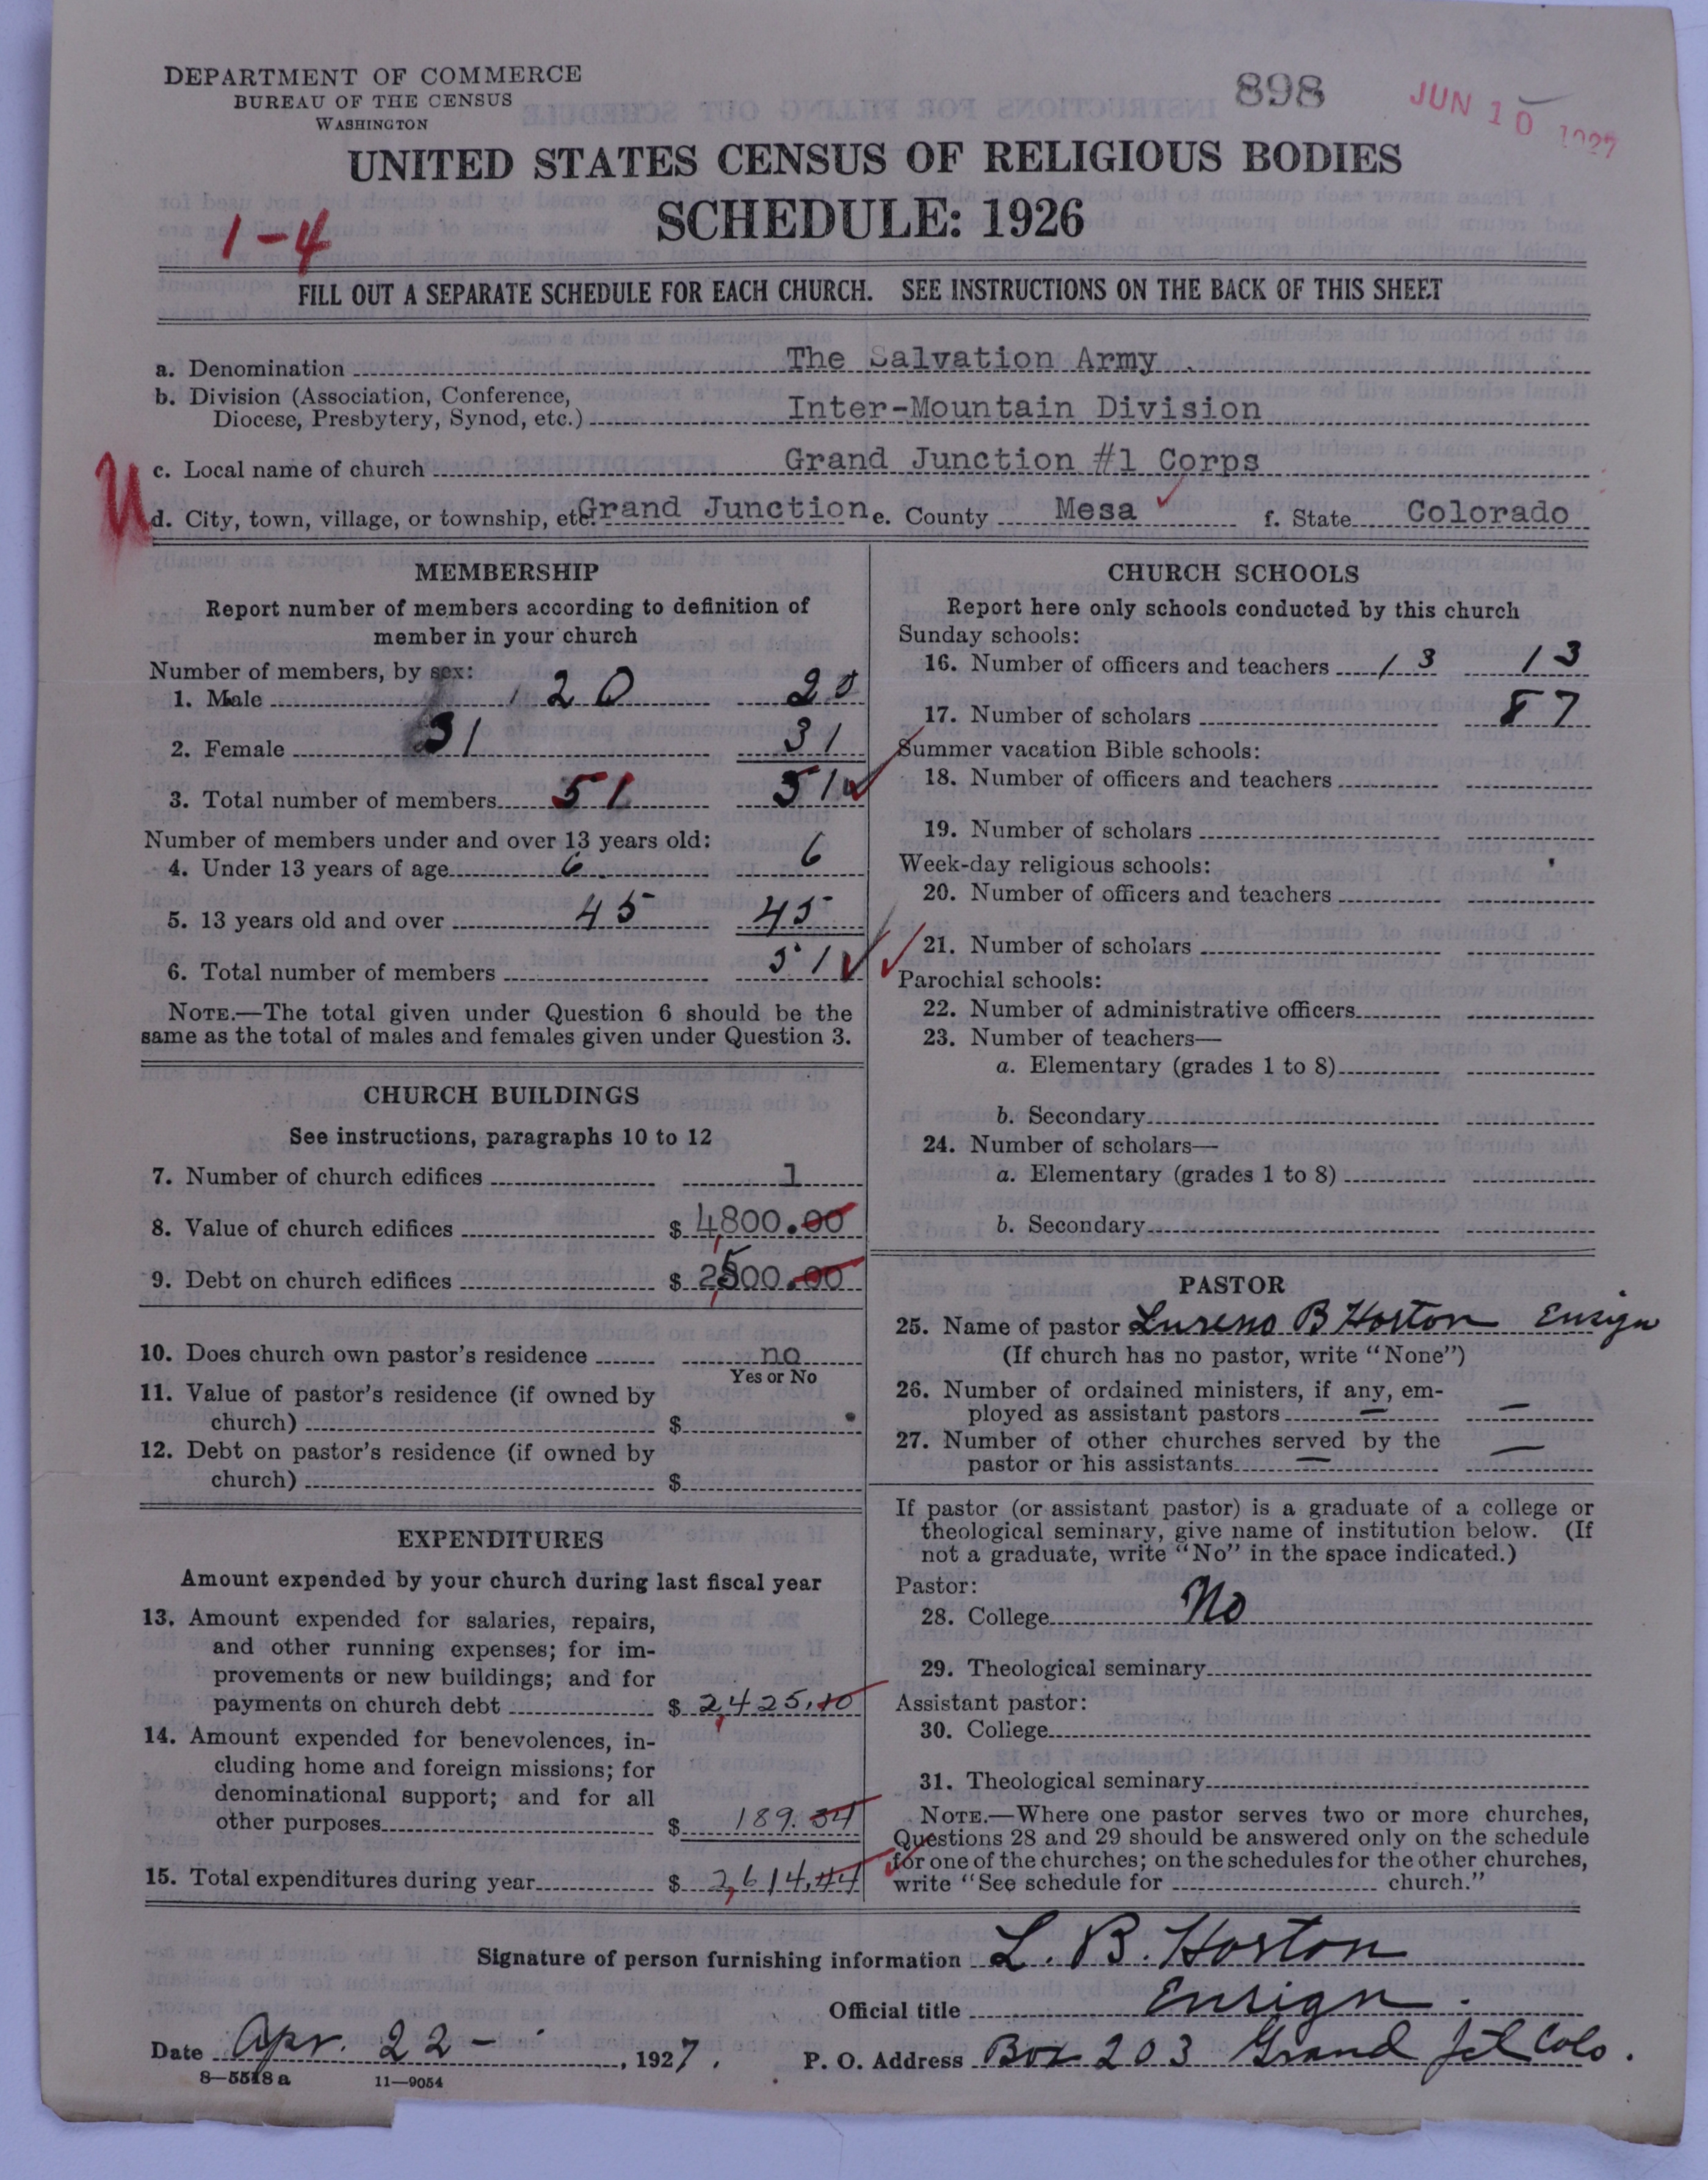 DEPARTMENT OF COMMERCE
BUREAU OF THE CENSUS
WASHINGTON
898
JUN 10 1927
UNITED STATES CENSUS OF RELIGIOUS BODIES
SCHEDULE: 1926
1-4
FILL OUT A SEPARATE SCHEDULE FOR EACH CHURCH. SEE INSTRUCTIONS ON THE BACK OF THIS SHEET
a. Denomination The Salvation Army
b. Division (Association, Conference,
Diocese, Presbytery, Synod, etc.) Inter-Mountain Division
c. Local name of church Grand Junction #1 Corps
U
d. City, town, village, or township, etc. Grand Junction e. County Mesa f. State Colorado
MEMBERSHIP
Report number of members according to definition of
member in your church
Number of members, by sex:
1. Male 20 20
2. Female 31 31
3. Total number of members 51 51
Number of members under and over 13 years old:
4. Under 13 years of age 6 6
5. 13 years old and over 45 45
6. Total number of members 51
NOTE.—The total given under Question 6 should be the
same as the total of males and females given under Question 3.
CHURCH BUILDINGS
See instructions, paragraphs 10 to 12
7. Number of church edifices 1
8. Value of church edifices $ 4,800.00
9. Debt on church edifices $ 2,500.00
10. Does church own pastor's residence no
Yes or No
11. Value of pastor's residence (if owned by
church) $
12. Debt on pastor's residence (if owned by
church) $
EXPENDITURES
Amount expended by your church during last fiscal year
13. Amount expended for salaries, repairs,
and other running expenses; for im-
provements or new buildings; and for
payments on church debt $ 2,425.10
14. Amount expended for benevolences, in-
cluding home and foreign missions; for
denominational support; and for all
other purposes $ 189.34
15. Total expenditures during year $ 2,614.44
CHURCH SCHOOLS
Report here only schools conducted by this church
Sunday schools:
16. Number of officers and teachers 13 13
17. Number of scholars 87
Summer vacation Bible schools:
18. Number of officers and teachers
19. Number of scholars
Week-day religious schools:
20. Number of officers and teachers
21. Number of scholars
Parochial schools:
22. Number of administrative officers
23. Number of teachers—
a. Elementary (grades 1 to 8)
b. Secondary
24. Number of scholars—
a. Elementary (grades 1 to 8)
b. Secondary
PASTOR
25. Name of pastor Lureno B Horton Ensign
(If church has no pastor, write "None")
26. Number of ordained ministers, if any, em-
ployed as assistant pastors — —
27. Number of other churches served by the
pastor or his assistants — —
If pastor (or assistant pastor) is a graduate of a college or
theological seminary, give name of institution below. (If
not a graduate, write "No" in the space indicated.)
Pastor:
28. College No
29. Theological seminary
Assistant pastor:
30. College
31. Theological seminary
NOTE.—Where one pastor serves two or more churches,
Questions 28 and 29 should be answered only on the schedule
for one of the churches; on the schedules for the other churches,
write "See schedule for church."
Signature of person furnishing information L. B. Horton
Official title Ensign.
Date Apr. 22 -, 1927. P. O. Address Box 203 Grand Jct Colo.
8—5518a 11—9054